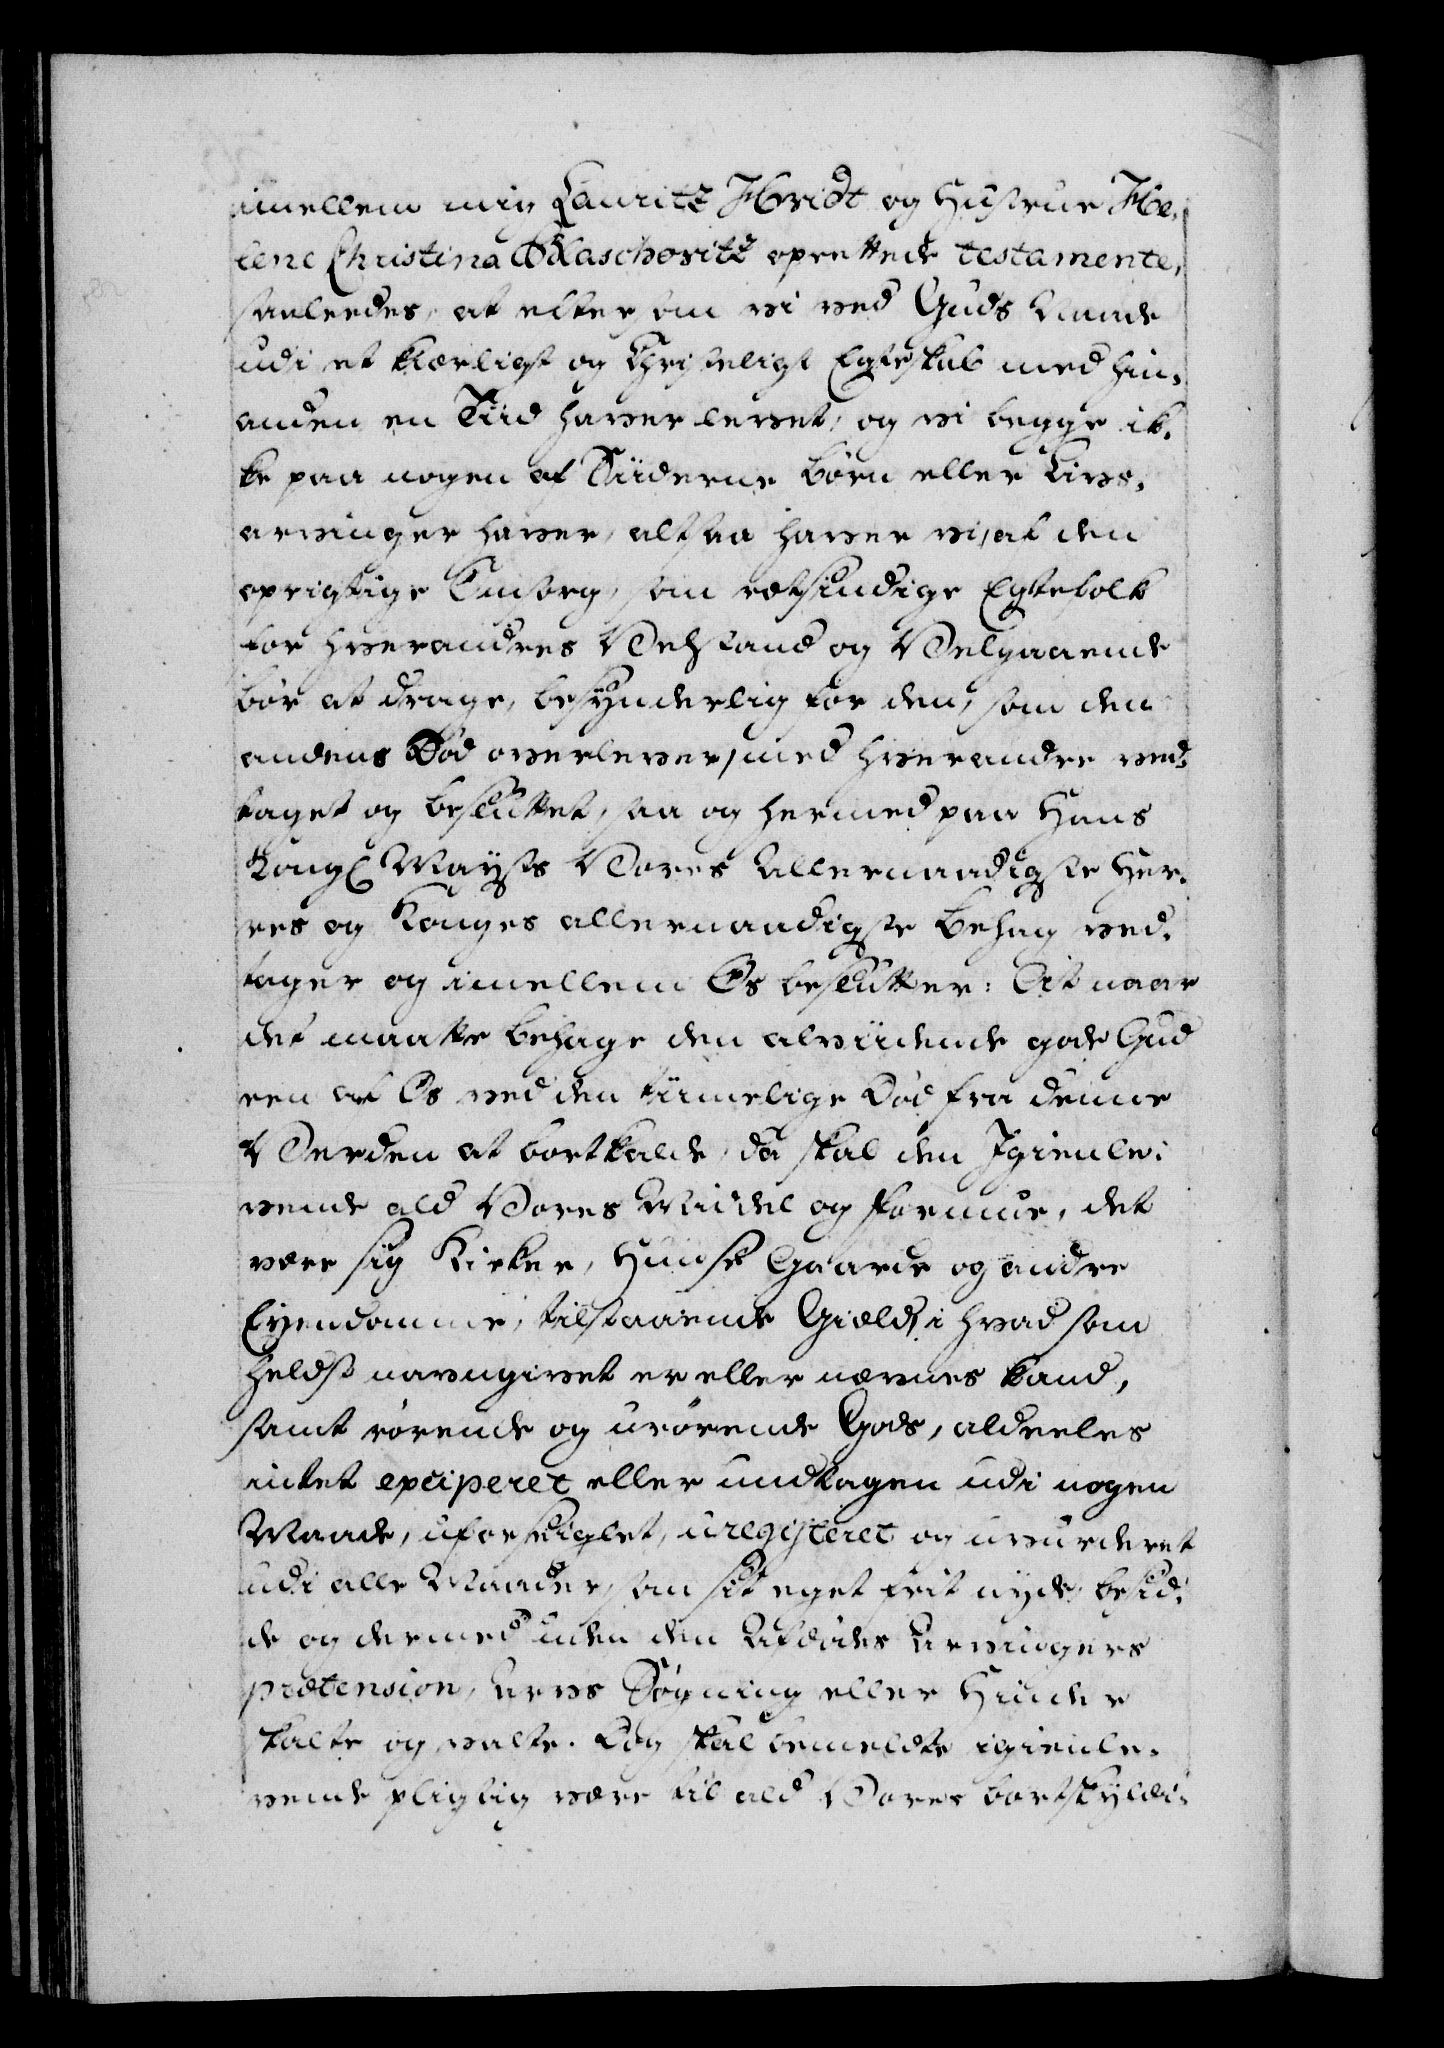 imellem mig Lauritz Hvidt og Hustrue He-
lene Christina Blaschovitz oprettede testamente,
saaledes, at eftersom vi ved Guds Naade
udi et kierligt og Christeligt Egteskab med hin-
anden en Tiid haver levet, og vi begge ik-
ke paa nogen af Siiderne børn eller Livs-
arvinger haver, altsaa haver vi, af den
oprigtige Omsorg, som retsindige Egtefolk
for hverandres Velstand og Velgaaende
bør at drage, besynderlig for den, som den
andens Død overlever, med hverandre ved-
taget og besluttet, saa og hermed paa Hans
Kongl Mayts Vores Allernaadigste Her-
res og Konges allernaadigste behag ved-
tager og imellem Os beslutter: At naar
det maatte behage den alviidende gode Gud
een af Os ved den tiimelige Død fra denne
Verden at bortkalde, da skal den Igienle-
vende ald Vores Middel og formue, det
være sig Kirker, Huuse Gaarde og andre
Eyendomme, tilstaaende Gield, i hvad som
heldst navngivet er eller nævnes kand,
samt rørende og urørende Gods, aldeeles
intet exciperet eller undtagen udi nogen
Maade, uforseiglet, uregisteret og uvurderet
udi alle Maader, som sit eget frit nyde, besid-
de og dermed uden den Afdødes Arvingers
prætension, Arvs Søgning eller Hinder
skalte og valte. Dog skal bemeldte igienle-
vende pligtig være til ald Vores bortskyldi-